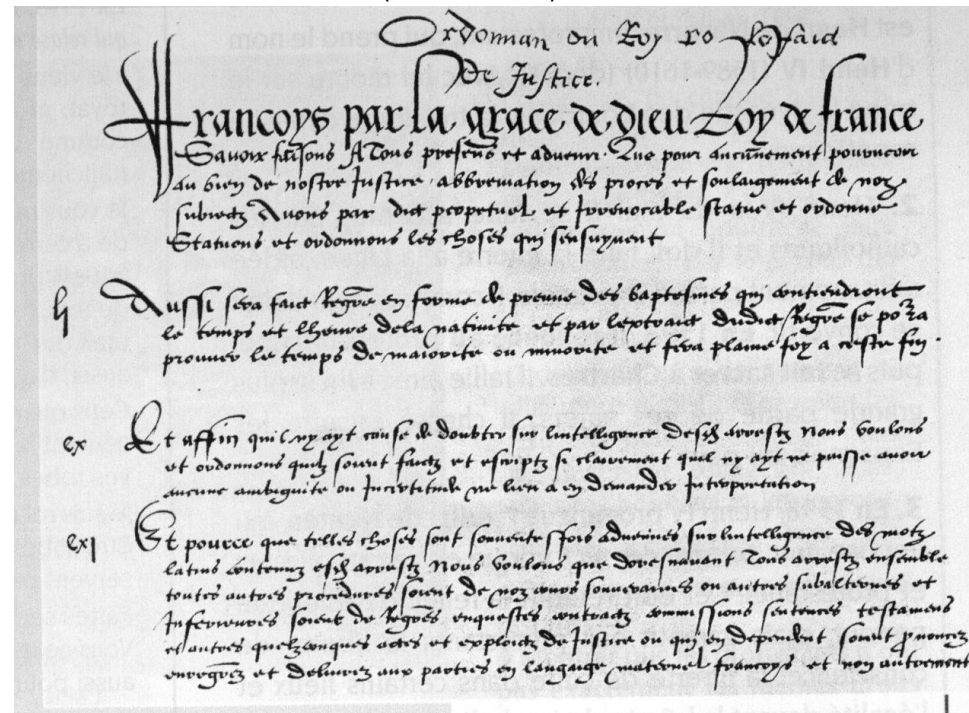 Ordonnan du Roy
De Justice.
Francoys par la grace de dieu Roy de france
Savoir faisons A Tous presens et advenir. Que pour aucunement pourveoir
au bien de nostre Justice, abbreviation des proces et soulaigement de noz
subiectz Avons par edict perpetuel et Irrevocable statue et ordonne
Statuons et ordonnons les choses qui sensuyvent
Aussi sera faict Regre en forme de preuve des baptesmes qui contiendront
le temps et lheure dela nativite et par lextraict dudict Regre se porra
prouver le temps de maiorite ou minorite et fera plaine foy a ceste fin.
cx Et affin quil ny ayt cause de doubter sur lintelligence desd arrestz Nous voulons
et ordonnons quilz soient faictz et escriptz si clairement quil ny ayt ne puisse avoir
aucune ambiguite ou Incertitude ne lieu a en demander Interpretation
cxi Et pource que telles choses sont souventesfois advenues sur lintelligence des motz
latins contenuz esd arrestz Nous voulons que doresnavant Tous arrestz ensemble
toutes autres procedures soient de noz cours souveraines ou autres subalternes et
Inferieures soient de Regres enquestes contractz testamens
et autres quelzconques actes et exploictz de Justice ou qui en dependent soient pnoncez
enregrez et delivrez aux parties en langage maternel francoys et non autrement